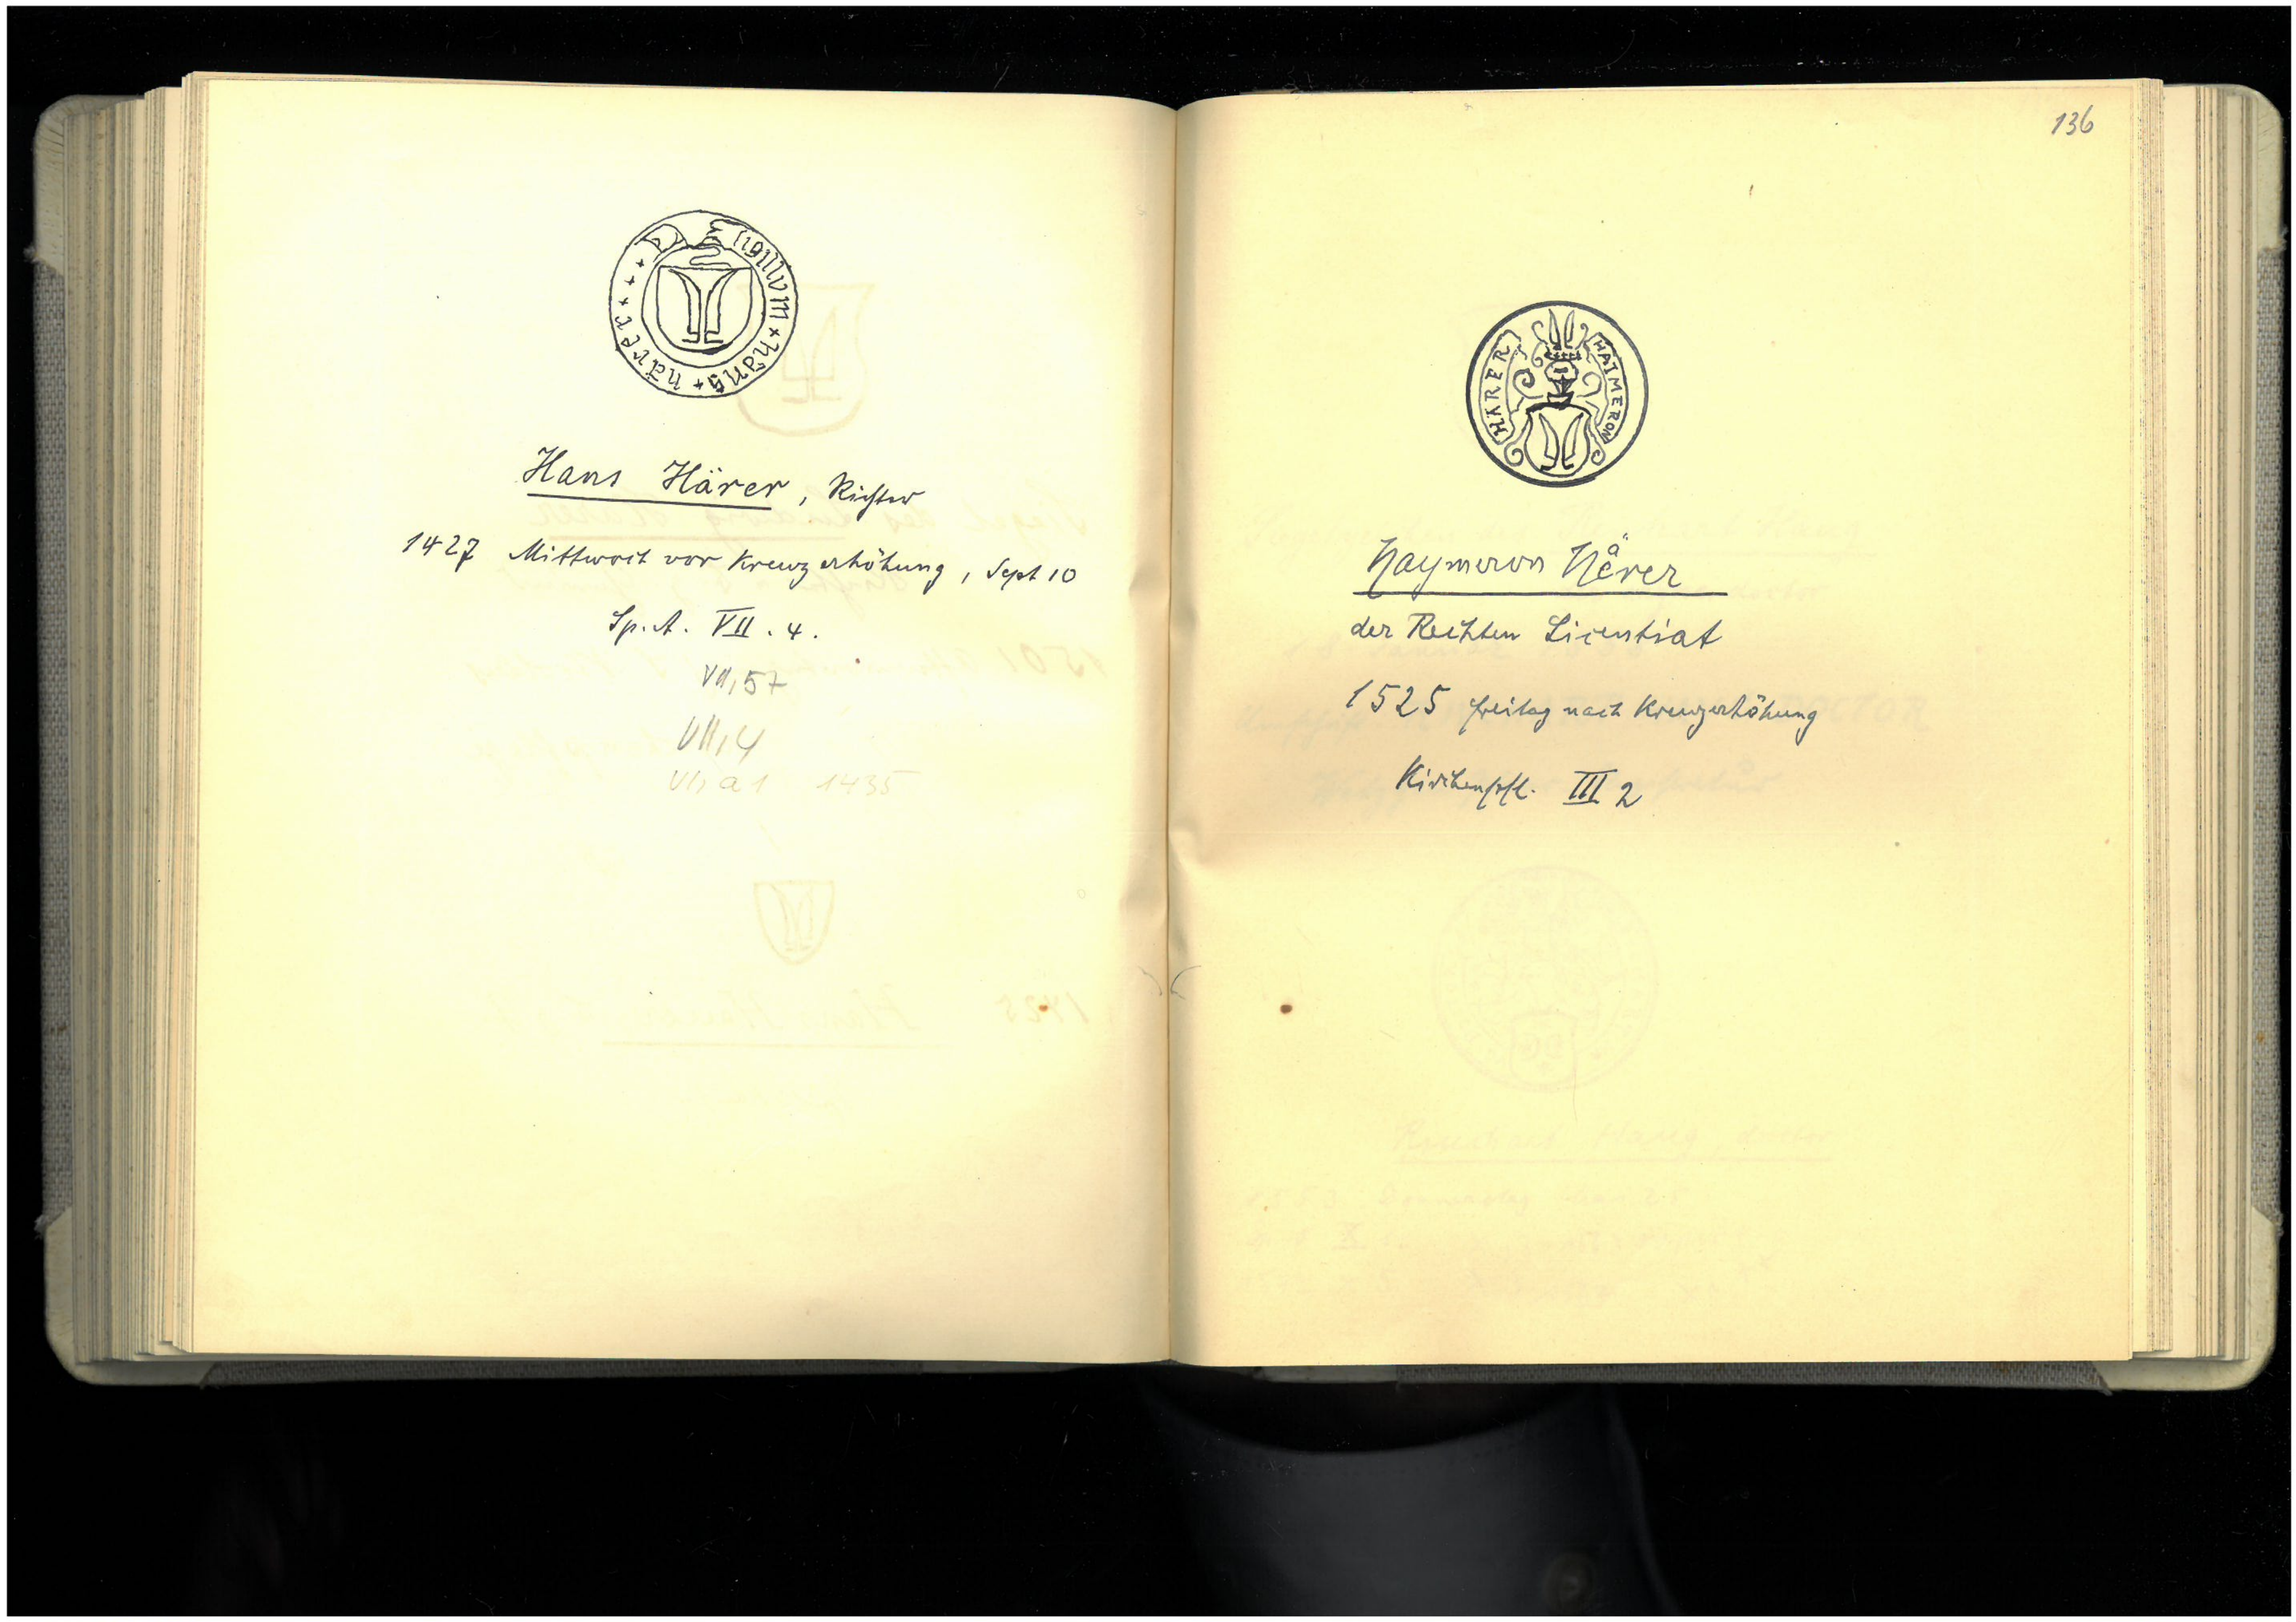 Sigillum + hans + härer + + + +
Hans Härer, Richter
1427 Mittwoch vor Kreuzerhöhung, Sept 10
Sp. A. VII. 4.
VII, 57
VII, 4
1435
136
HÄRER HAIMERON
Haymeron Hårer
der Rechten Licentiat
1525 freitag nach Kreuzerhöhung
Kirchenpfl. III 2